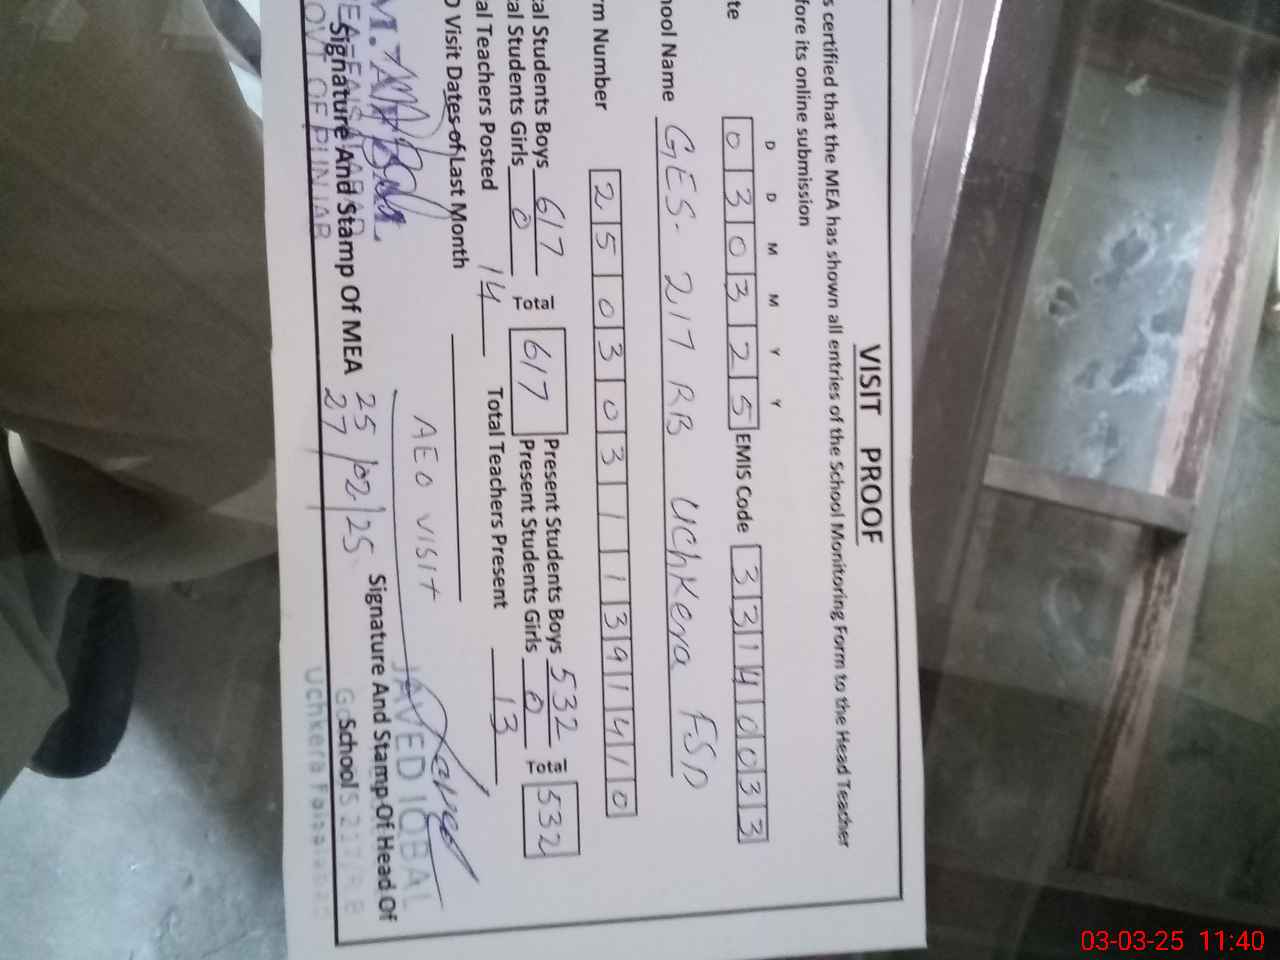 VISIT PROOF
s certified that the MEA has shown all entries of the School Monitoring Form to the Head Teacher
fore its online submission
D D M M Y Y
te 030325 EMIS Code 33140033
hool Name GES. 217 RB Uchkera FSD
rm Number 250303111391410
tal Students Boys 617 Total 617 Present Students Boys 532 Total 532
tal Students Girls 0 Present Students Girls 0
al Teachers Posted 14 Total Teachers Present 13
O Visit Dates of Last Month
AEO visit
25 /02/25
27
Signature And Stamp Of MEA
M.
MEA FAISALABAD
GOVT OF PUNJAB
Signature And Stamp Of Head Of
School
JAVED IQBAL
S 217/R.B
Uchkera Faisalabad
03-03-25 11:40